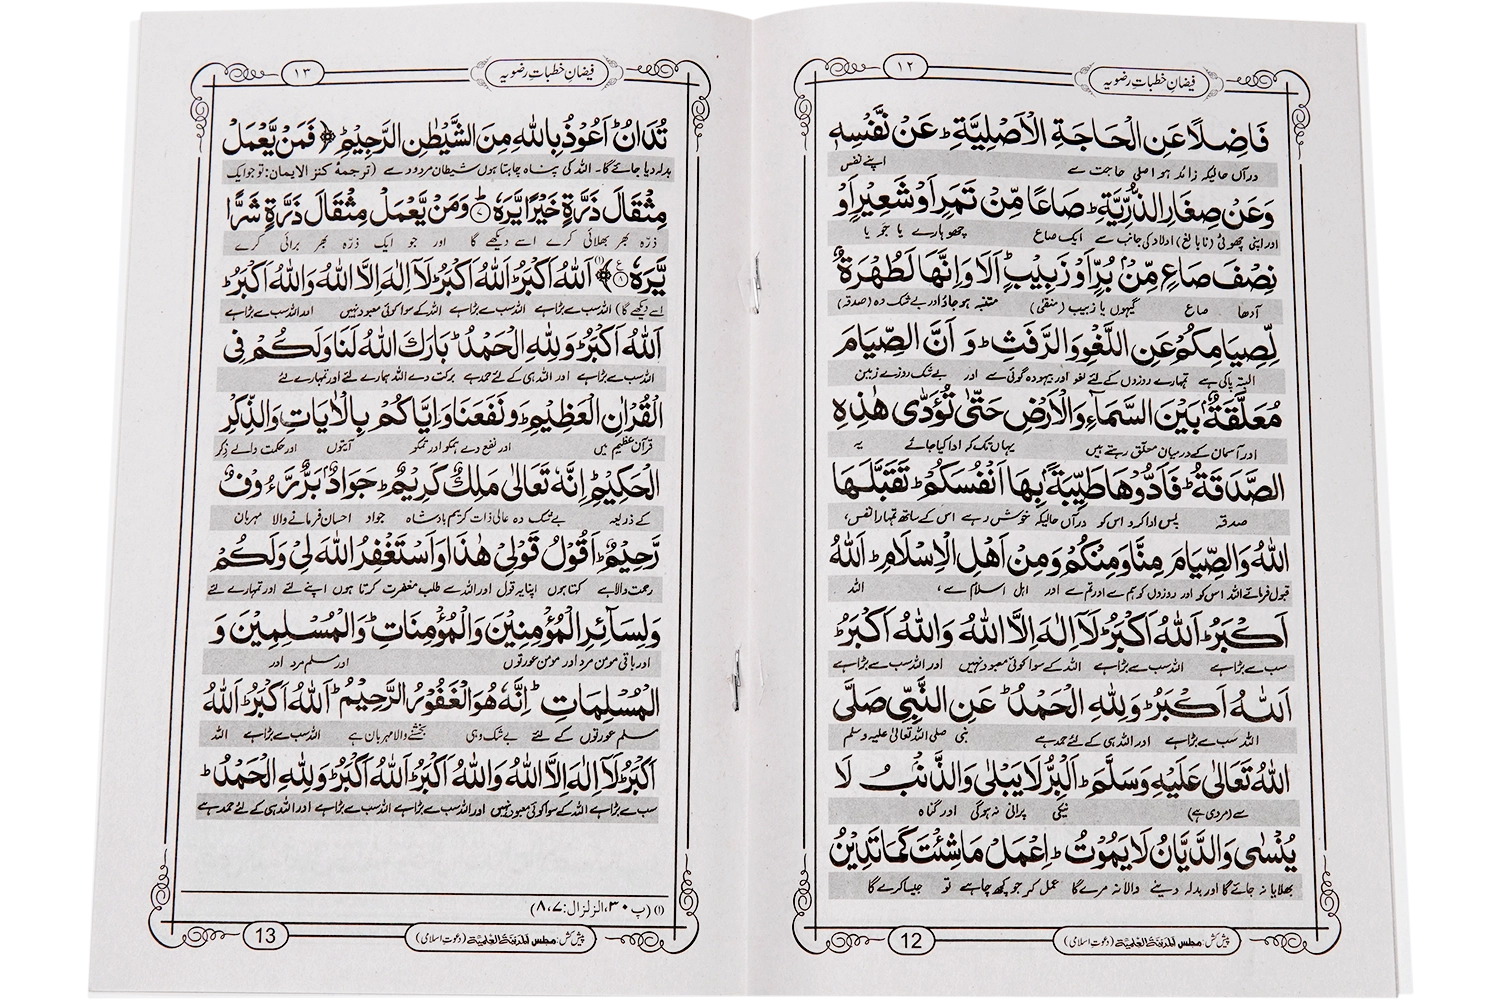 فیضانِ خطباتِ رضویہ
١٢
فَاضِلًا عَنِ الْحَاجَةِ الْاَصْلِيَّةِ ؕ عَنْ نَّفْسِهٖ
درآں حالیکہ زائد ہو اصلی حاجت سے اپنے نفس
وَعَنْ صِغَارِ الذُّرِّيَّةِ ؕ صَاعًا مِّنْ تَمَرٍ اَوْ شَعِيْرٍ اَوْ
اور اپنی چھوٹی (نابالغ) اولاد کی جانب سے ایک صاع چھوہارے یا جو یا
نِصْفَ صَاعٍ مِّنْ بُرٍّ اَوْ زَبِيْبٍ ؕ اَلَا وَاِنَّهَا لَطُهْرَةٌ
آدھا صاع گیہوں یا زبیب (منقی) متنبہ ہو جاؤ اور بے شک وہ (صدقہ)
لِّصِيَامِكُمْ عَنِ اللَّغْوِ وَالرَّفَثِ ؕ وَ اَنَّ الصِّيَامَ
البتہ پاکی ہے تمہارے روزوں کے لئے لغو اور بیہودہ گوئی سے اور بے شک روزے زمین
مُعَلَّقَةٌ ۢ بَيْنَ السَّمَاءِ وَالْاَرْضِ حَتّٰى تُؤَدّٰى هٰذِهِ
اور آسمان کے درمیان معلّق رہتے ہیں یہاں تک کہ ادا کیا جائے یہ
الصَّدَقَةُ ؕ فَاَدُّوْهَا طَيِّبَةً ۢ بِهَا اَنْفُسَكُمْ ؕ تَقَبَّلَهَا
صدقہ پس ادا کرو اس کو درآں حالیکہ خوش رہے اس کے ساتھ تمہارا نفس،
اللّٰهُ وَالصِّيَامَ مِنَّا وَمِنْكُمْ وَمِنْ اَهْلِ الْاِسْلَامِ ؕ اَللّٰهُ
قبول فرمائے اللہ اس کو اور روزوں کو ہم سے اور تم سے اور اہل اسلام سے، اللہ
اَكْبَرُ ؕ اَللّٰهُ اَكْبَرُ لَآ اِلٰهَ اِلَّا اللّٰهُ وَاللّٰهُ اَكْبَرُ ؕ
سب سے بڑا ہے اللہ سب سے بڑا ہے اللہ کے سوا کوئی معبود نہیں اور اللہ سب سے بڑا ہے
اَللّٰهُ اَكْبَرُ ؕ وَلِلّٰهِ الْحَمْدُ ؕ عَنِ النَّبِيِّ صَلَّى
اللہ سب سے بڑا ہے اور اللہ ہی کے لئے حمد ہے نبی صلی اللہ تعالیٰ علیہ وسلم
اللّٰهُ تَعَالٰى عَلَيْهِ وَسَلَّمَ ؕ اَلْبِرُّ لَا يَبْلٰى وَالذَّنْۢبُ لَا
سے (مروی ہے) نیکی پرانی نہ ہوگی اور گناہ
يُنْسٰى وَالدَّيَّانُ لَا يَمُوْتُ ؕ اِعْمَلْ مَا شِئْتَ كَمَا تَدِيْنُ
بھلایا نہ جائے گا اور بدلہ دینے والا نہ مرے گا عمل کر جو کچھ چاہے تو جیسا کرے گا
پیش کش: مجلس المدینۃ العلمیۃ (دعوتِ اسلامی)
12
فیضانِ خطباتِ رضویہ
١٣
تُدَانُ ؕ اَعُوْذُ بِاللّٰهِ مِنَ الشَّيْطٰنِ الرَّجِيْمِ ؕ ﴿ فَمَنْ يَّعْمَلْ
بدلہ دیا جائے گا۔ اللہ کی پناہ چاہتا ہوں شیطان مردود سے (ترجمۂ کنز الایمان: تو جو ایک
مِثْقَالَ ذَرَّةٍ خَيْرًا يَّرَهٗ ؕ ۷ وَمَنْ يَّعْمَلْ مِثْقَالَ ذَرَّةٍ شَرًّا
ذرّہ بھر بھلائی کرے اسے دیکھے گا اور جو ایک ذرّہ بھر برائی کرے
يَّرَهٗ ۸ ﴾ (۱) اَللّٰهُ اَكْبَرُ اَللّٰهُ اَكْبَرُ لَآ اِلٰهَ اِلَّا اللّٰهُ وَاللّٰهُ اَكْبَرُ ؕ
اسے دیکھے گا) اللہ سب سے بڑا ہے اللہ سب سے بڑا ہے اللہ کے سوا کوئی معبود نہیں اور اللہ سب سے بڑا ہے
اَللّٰهُ اَكْبَرُ ؕ وَلِلّٰهِ الْحَمْدُ ؕ بَارَكَ اللّٰهُ لَنَا وَلَكُمْ فِي
اللہ سب سے بڑا ہے اور اللہ ہی کے لئے حمد ہے برکت دے اللہ ہمارے لئے اور تمہارے لئے
الْقُرْاٰنِ الْعَظِيْمِ ؕ وَنَفَعَنَا وَاِيَّاكُمْ بِالْاٰيَاتِ وَالذِّكْرِ
قرآن عظیم میں اور نفع دے ہمکو اور تمکو آیتوں اور حکمت والے ذِکر
الْحَكِيْمِ ؕ اِنَّهٗ تَعَالٰى مَلِكٌ كَرِيْمٌ ؕ جَوَادٌ ۢ بَرٌّ رَءُوْفٌ
کے ذریعہ بے شک وہ عالی ذات کریم بادشاہ جواد احسان فرمانے والا مہربان
رَّحِيْمٌ ؕ اَقُوْلُ قَوْلِيْ هٰذَا وَاَسْتَغْفِرُ اللّٰهَ لِيْ وَلَكُمْ
رحمت والا ہے کہتا ہوں اپنا یہ قول اور اللہ سے طلب مغفرت کرتا ہوں اپنے لئے اور تمہارے لئے
وَلِسَآئِرِ الْمُؤْمِنِيْنَ وَالْمُؤْمِنَاتِ ؕ وَالْمُسْلِمِيْنَ وَ
اور باقی مومن مرد اور مومن عورتوں اور مسلم مرد اور
الْمُسْلِمَاتِ ؕ اِنَّهٗ هُوَ الْغَفُوْرُ الرَّحِيْمُ ؕ اَللّٰهُ اَكْبَرُ ؕ اَللّٰهُ
مسلم عورتوں کے لئے بے شک وہی بخشنے والا مہربان ہے اللہ سب سے بڑا ہے اللہ
اَكْبَرُ لَآ اِلٰهَ اِلَّا اللّٰهُ وَاللّٰهُ اَكْبَرُ ؕ اَللّٰهُ اَكْبَرُ ؕ وَلِلّٰهِ الْحَمْدُ ؕ
سب سے بڑا ہے اللہ کے سوا کوئی معبود نہیں اور اللہ سب سے بڑا ہے اللہ سب سے بڑا ہے اور اللہ ہی کے لئے حمد ہے
(۱) (پ ۳۰، الزلزال: ۷، ۸)
پیش کش: مجلس المدینۃ العلمیۃ (دعوتِ اسلامی)
13